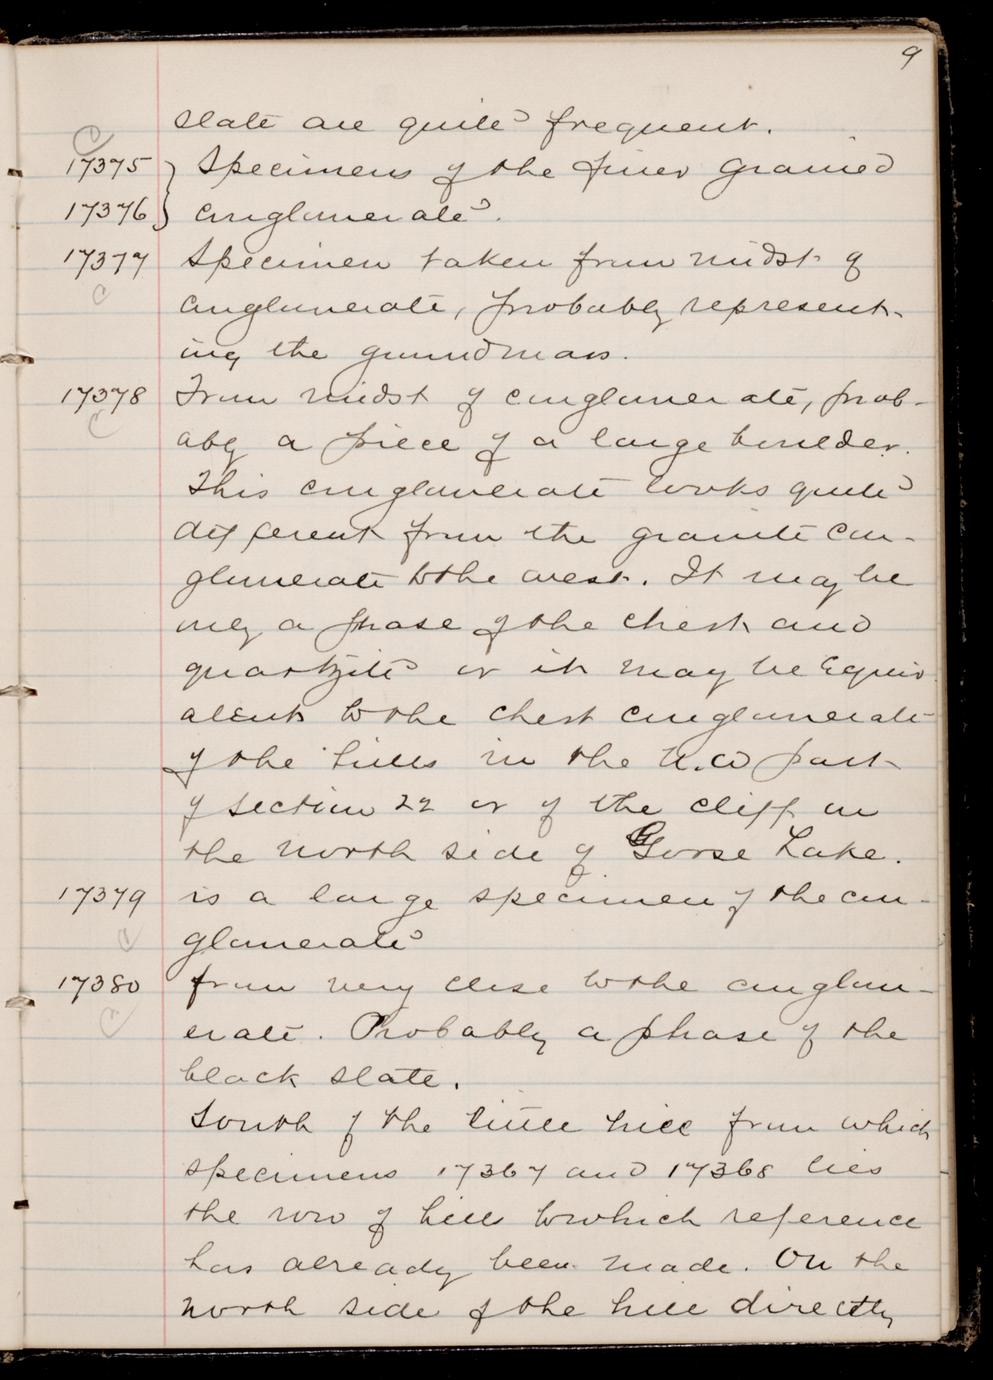 9
slate are quite frequent.
C
17375 } Specimens of the finer grained
17376 } conglomerate.
17377 Specimen taken from midst of
C
conglomerate, probably represent-
ing the groundmass.
17378 From midst of conglomerate, prob-
C
ably a piece of a large boulder.
This conglomerate looks quite
different from the granite con-
glomerate to the west. It may be
only a phase of the chert and
quartzite or it may be equiv
alent to the chert conglomerate
of the hills in the N.W part
of section 22 or of the cliff on
the north side of Goose Lake.
17379 is a large specimen of the con-
C
glomerate
17380 from very close to the conglom-
C
erate. Probably a phase of the
black slate.
South of the little hill from which
specimens 17367 and 17368 lies
the row of hills to which reference
has already been made. On the
north side of the hill directly